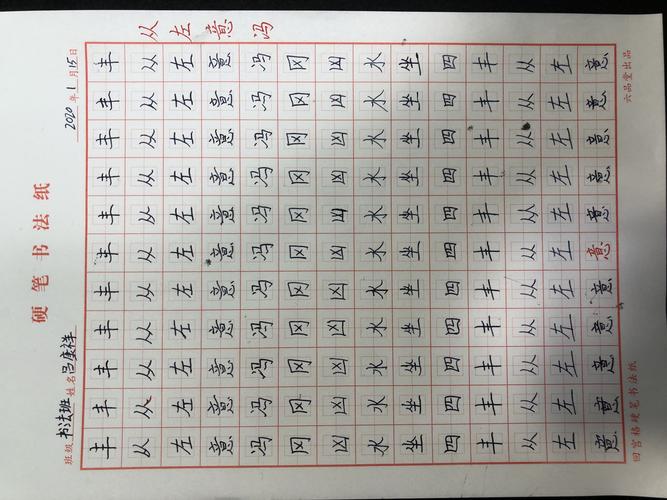 硬笔书法纸
班级 书法班 姓名 2020年1月15日
丰丰丰丰丰丰丰丰丰丰丰
从从从从从从从从从从从 从
左左左左左左左左左左左 左
意意意意意意意意意意意 意
冯冯冯冯冯冯冯冯冯冯冯 冯
冈冈冈冈冈冈冈冈冈冈冈
凶凶凶凶凶凶凶凶凶凶凶
水水水水水水水水水水水
坐坐坐坐坐坐坐坐坐坐坐
四四四四四四四四四四四
丰丰丰丰丰丰丰丰丰丰丰
从从从从从从从从从从从
左左左左左左左左左左左
意意意意意意意意意意意
回宫格硬笔书法纸 六品堂出品